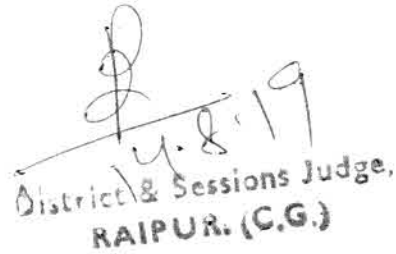 14.8.19
District & Sessions Judge,
RAIPUR. (C.G.)